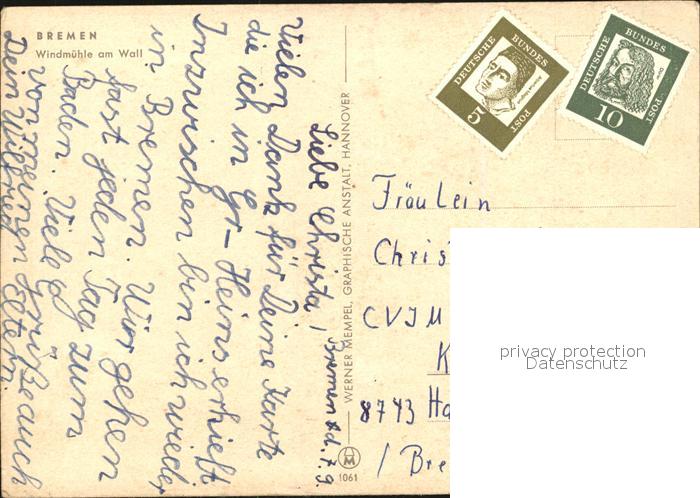 BREMEN
Windmühle am Wall
Bremen, d. 7. 9.
Liebe Christa!
Vielen Dank für Deine Karte
die ich in Gr-Heins erhielt
Inzwischen bin ich wieder
in Bremen. Wir gehen
fast jeden Tag zum
Baden. Viele
Grüße auch
von meinen Eltern.
Dein Wilfried
WERNER MEMPEL, GRAPHISCHE ANSTALT, HANNOVER
1061
DEUTSCHE BUNDES POST
5
DEUTSCHE BUNDES POST
10
Fräulein
Chris
CVJM
K
8743 Ha
/ Bre
privacy protection
Datenschutz